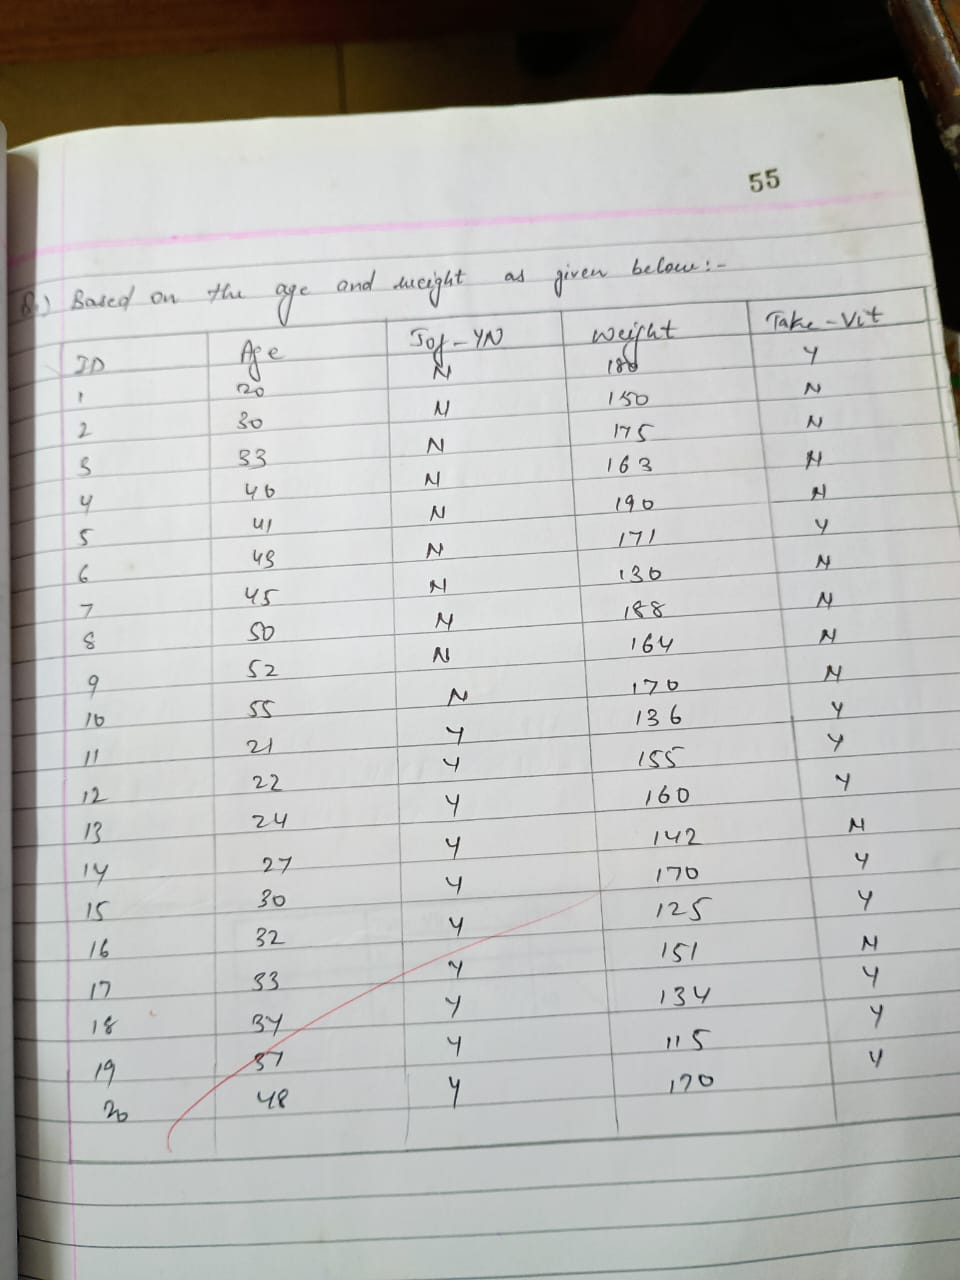 55
Q.) Based on the age and weight as given below:-
ID Age Jog-YN Weight Take-Vit
1 20 N 180 Y
2 30 N 150 N
3 33 N 175 N
4 40 N 163 N
5 41 N 190 N
6 43 N 171 Y
7 45 N 130 N
8 50 N 188 N
9 52 N 164 N
10 55 N 170 N
11 21 Y 136 Y
12 22 Y 155 Y
13 24 Y 160 Y
14 27 Y 142 N
15 30 Y 170 Y
16 32 Y 125 Y
17 33 Y 151 N
18 34 Y 134 Y
19 37 Y 115 Y
20 48 Y 170 Y